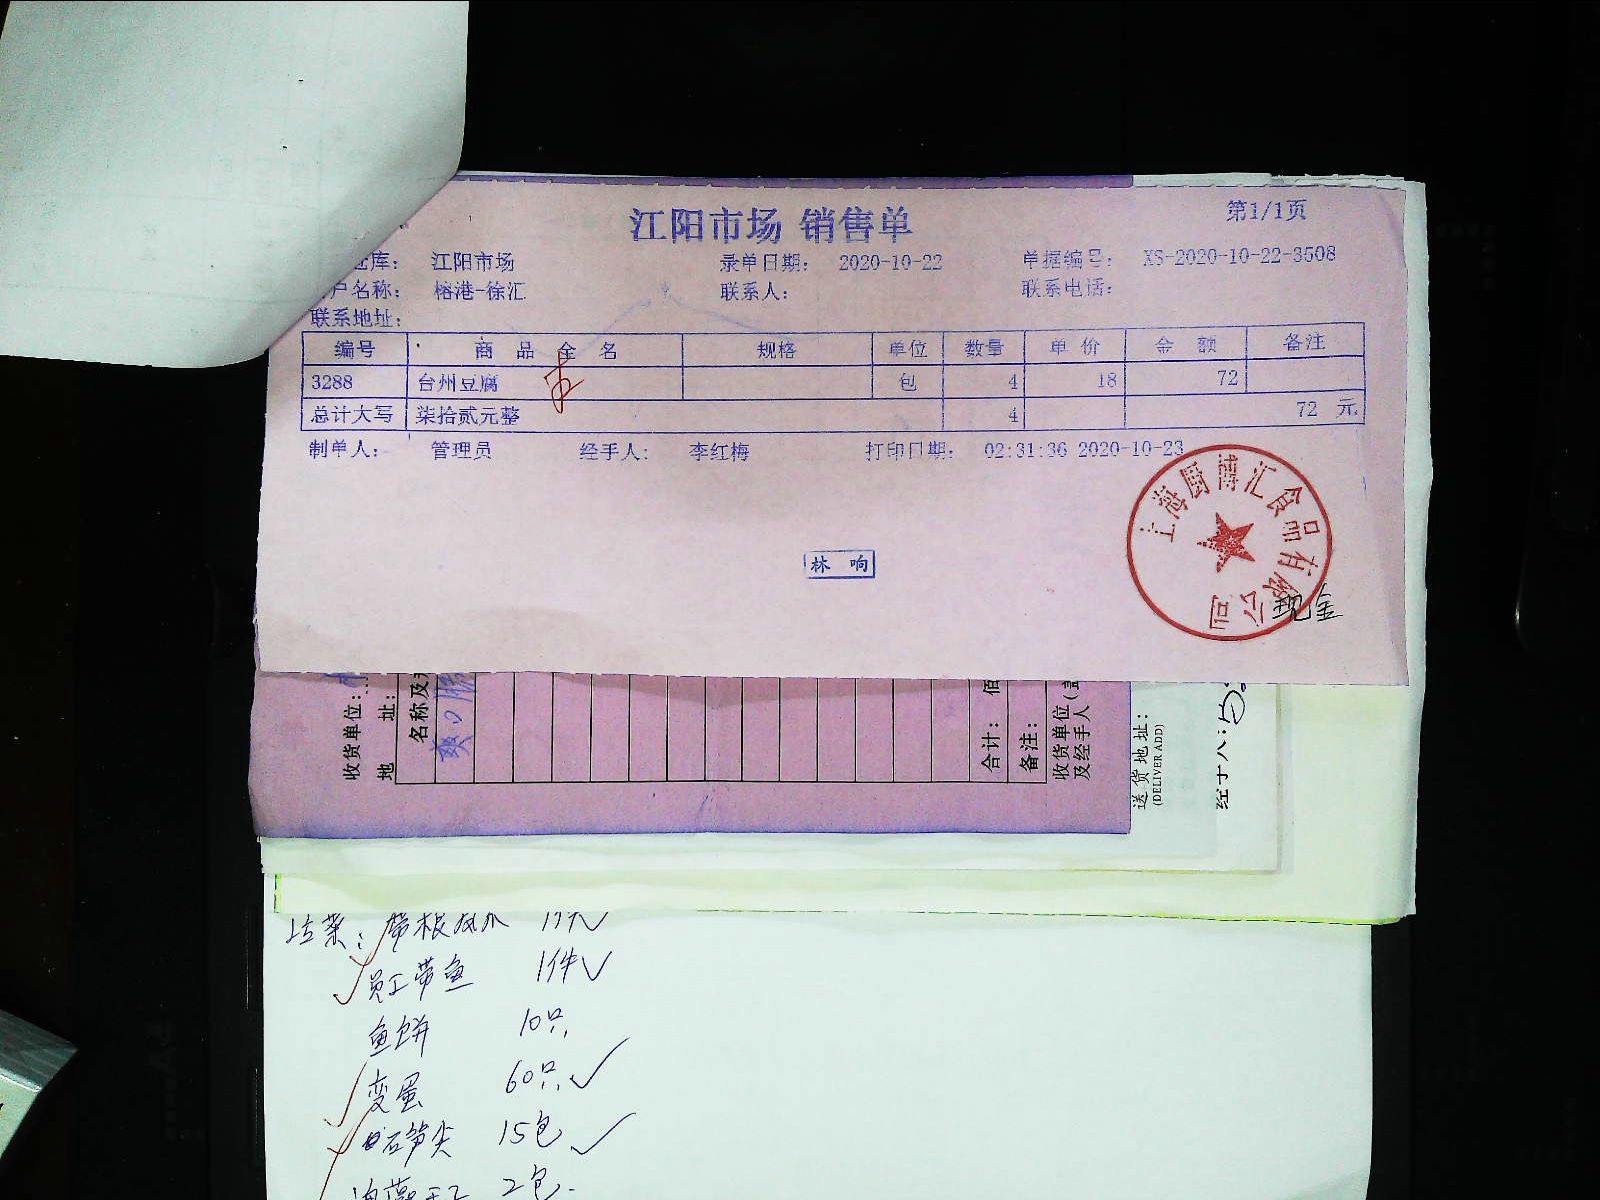 江阳市场 销售单
第1/1页
库： 江阳市场 录单日期： 2020-10-22 单据编号： XS-2020-10-22-3508
户名称： 榕港-徐汇 联系人： 联系电话：
联系地址：
编号 商品全名 规格 单位 数量 单价 金额 备注
3288 台州豆腐 包 4 18 72
总计大写 柒拾贰元整 4 72 元
制单人： 管理员 经手人： 李红梅 打印日期： 02:31:36 2020-10-23
上海厨博汇食品有限公司
林响
现金
收货单位：
地 址：
名称及
合计： 佰
备注：
收货单位（盖
及经手人
送货地址：
(DELIVER ADD)
带根
员工带鱼 1件
鱼饼 10只
变蛋 60只
石笋尖 15包
2包